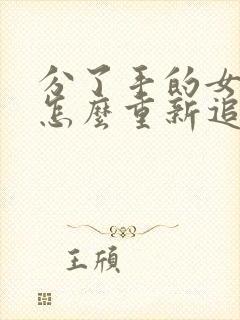 分了手的女
怎麼重新追
王頎